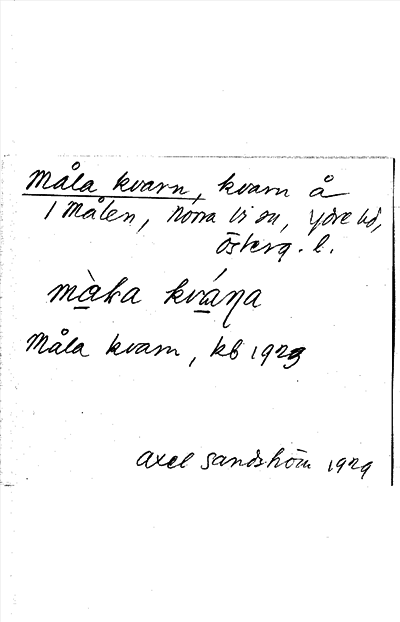 Måla kvarn, kvarn å
1 Målen, norra vi sn, ydre hd,
österg. l.
màka kvána
Måla kvarn, kb 1929
axel sandström 1929